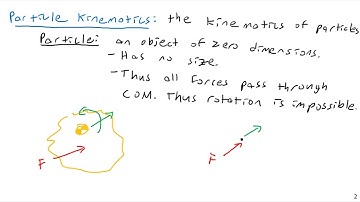 Particle Kinematics: the kinematics of particles
Particle: an object of zero dimensions.
- Has no size.
- Thus all forces pass through
COM. Thus rotation is impossible.
F
F
2